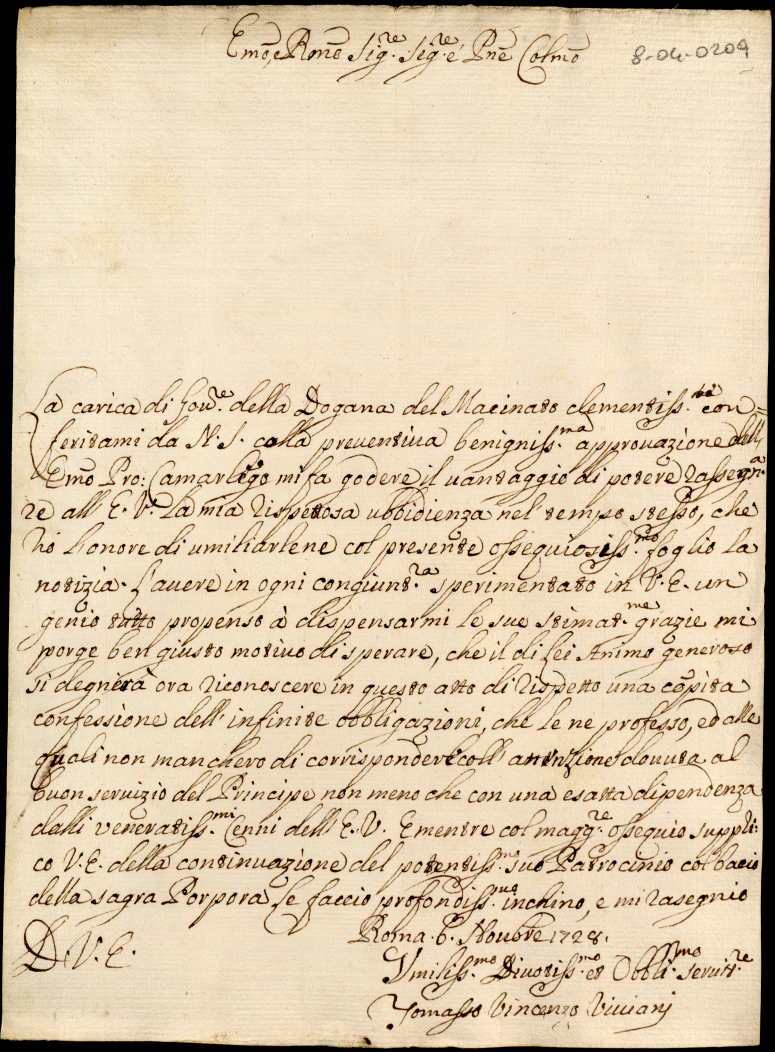 Emo, e Rmo Sig.re Sig.re e Pne Colmo
8-04-0209
La carica di Gov.re della Dogana del Macinato clementiss.te con=
feritami da N.S. colla preventiva benigniss.ma approvazione dell
Emo Pro: Camarligo mi fa godere il vantaggio di potere rassegn.a
re all E.V. la mia rispettosa ubbidienza nel tempo stesso, che
hò l'onore di umiliarlene col presente ossequiosiss.mo foglio la
notizia. L'avere in ogni congiunt.ra sperimentato in V.E. un
genio tutto propenso à dispensarmi le sue stimat.me grazie mi
porge ben giusto motivo di sperare, che il di Lei Animo generoso
si degnerà ora riconoscere in questo atto di rispetto una
confessione dell'infinite obbligazioni, che le ne professo, ed alle
quali non mancherò di corrispondere coll'attenzione dovuta al
buon servizio del Principe non meno che con una esatta dipendenza
dalli veneratiss.mi Cenni dell'E.V. E mentre col magg.re ossequio suppli:
co V.E. della continuazione del potentiss.mo suo Patrocinio col bacio
della sagra Porpora Le faccio profondiss.mo inchino, e mi rasegnio
D. V. E.
Roma 6. Novbre 1728.
Vmiliss.mo Divotiss.mo et Obbli.mo Servit.re
Tomasso Vincenzo Viviani